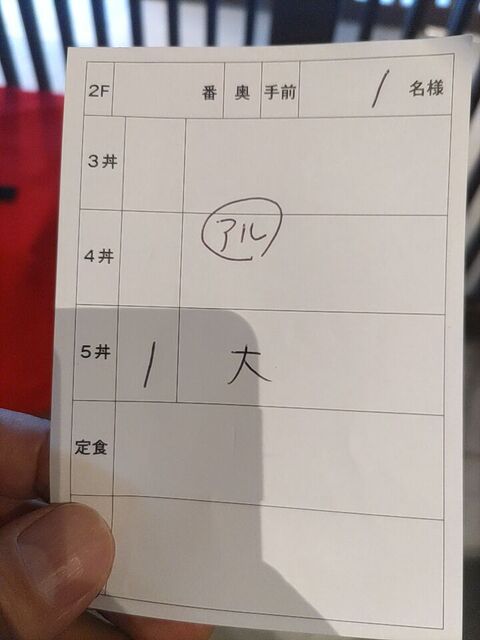 2F 番 奥 手前 1 名様
3丼
アル
4丼
5丼 1 大
定食